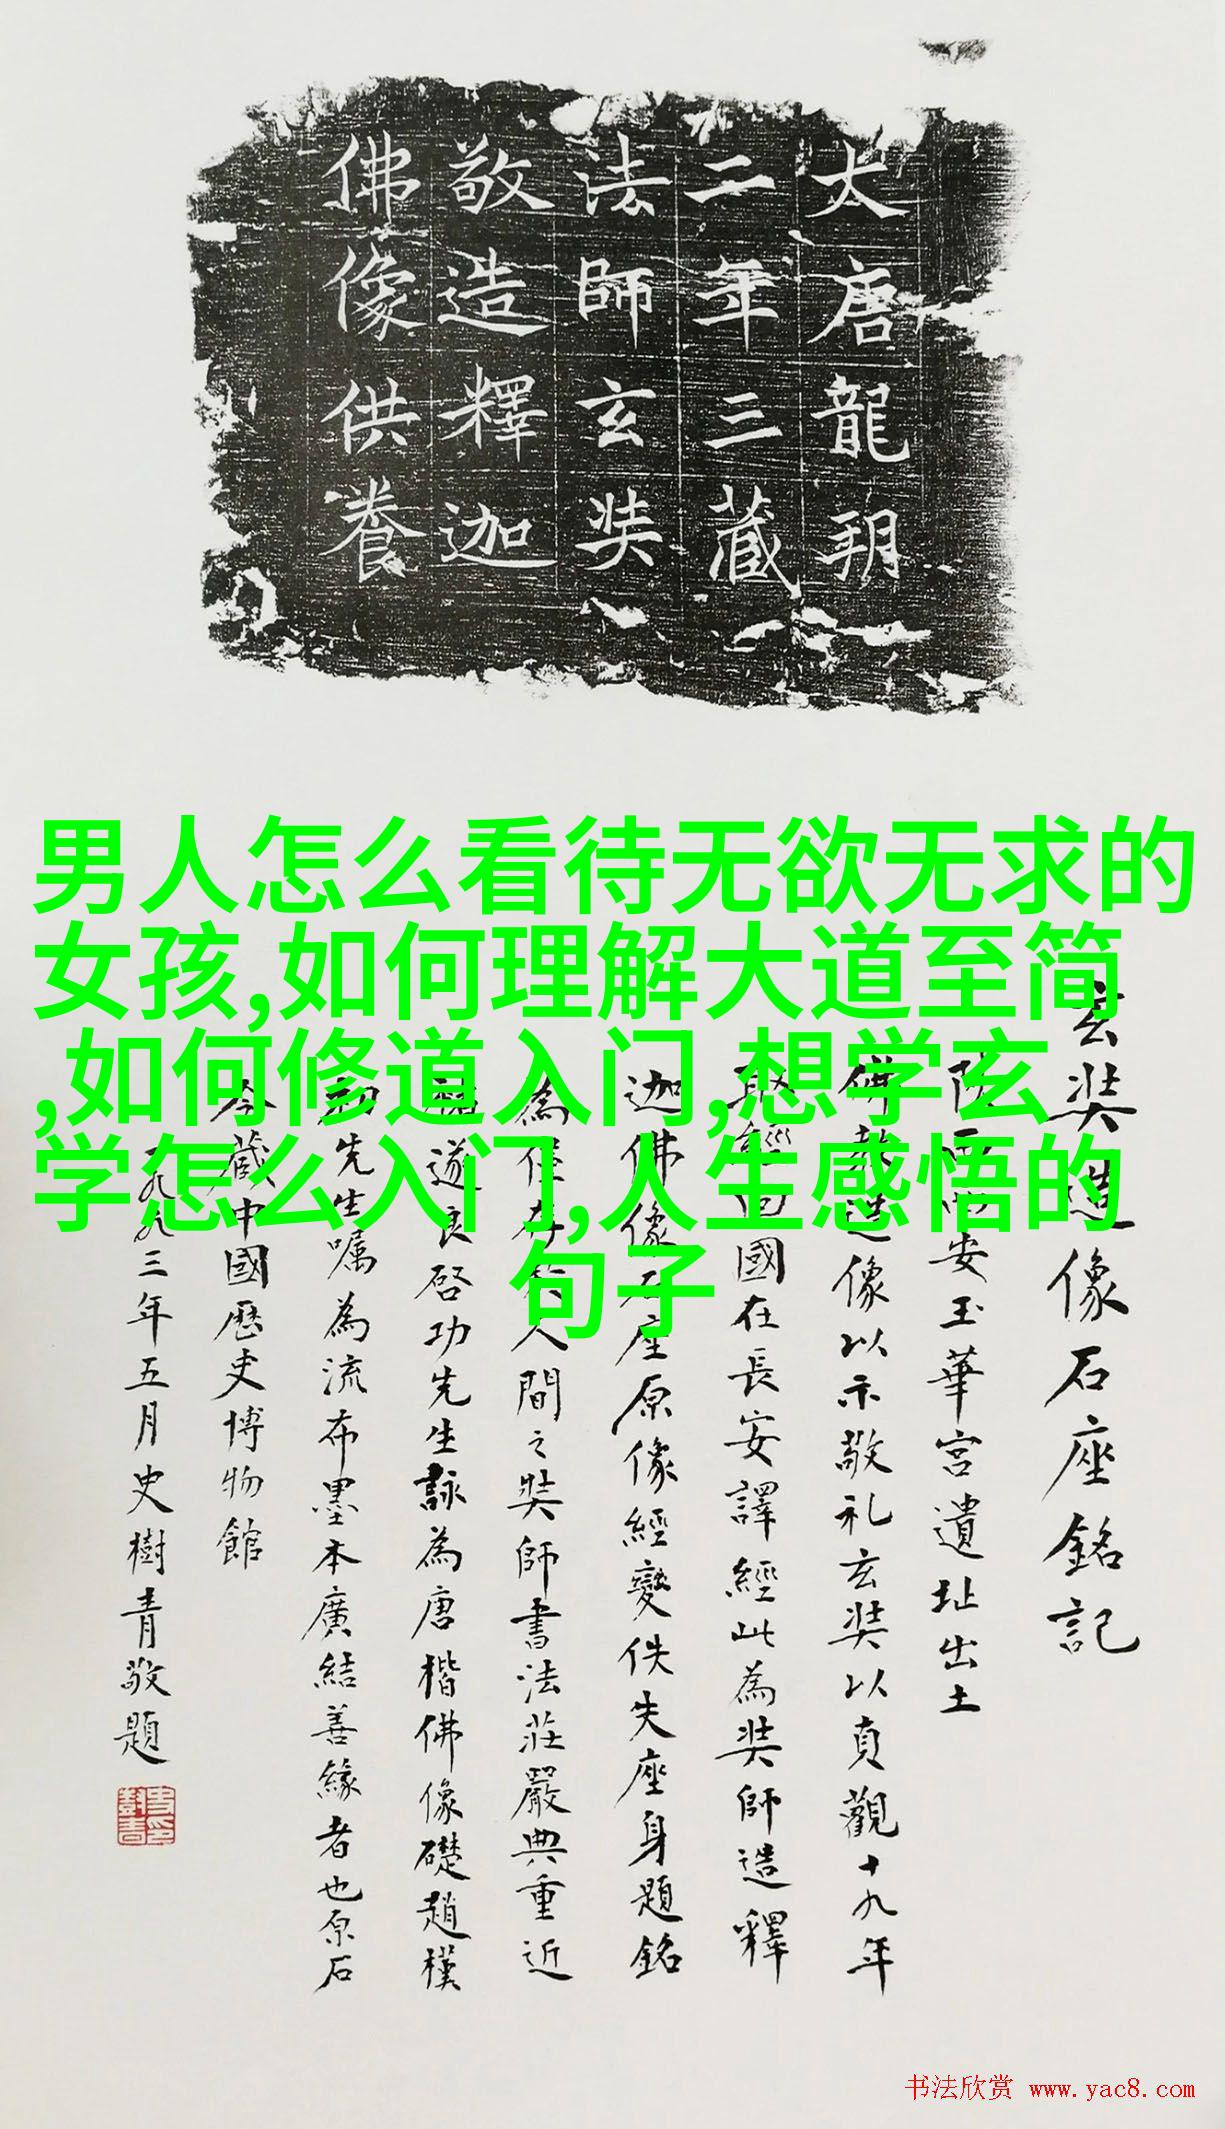 大唐龍朔
二年三藏
法師玄奘
敬造釋迦
佛像供養
男人怎么看待无欲无求的
女孩,如何理解大道至简
,如何修道入门,想学玄
学怎么入门,人生感悟的
句子
玄奘造像石座銘記
安玉華宮遺址出土
佛教造像以示敬礼玄奘以貞觀十九年
國在長安譯經此為奘師造釋
迦佛像石座原像經變佚失座身題銘
為僅存人間之奘師書法莊嚴典重近
褚遂良啓功先生詠為唐楷佛像礎趙樸
初先生囑為流布墨本廣結善緣者也原石
今藏中國歷史博物館
一九九三年五月史樹青敬題
书法欣赏 www.yac8.com